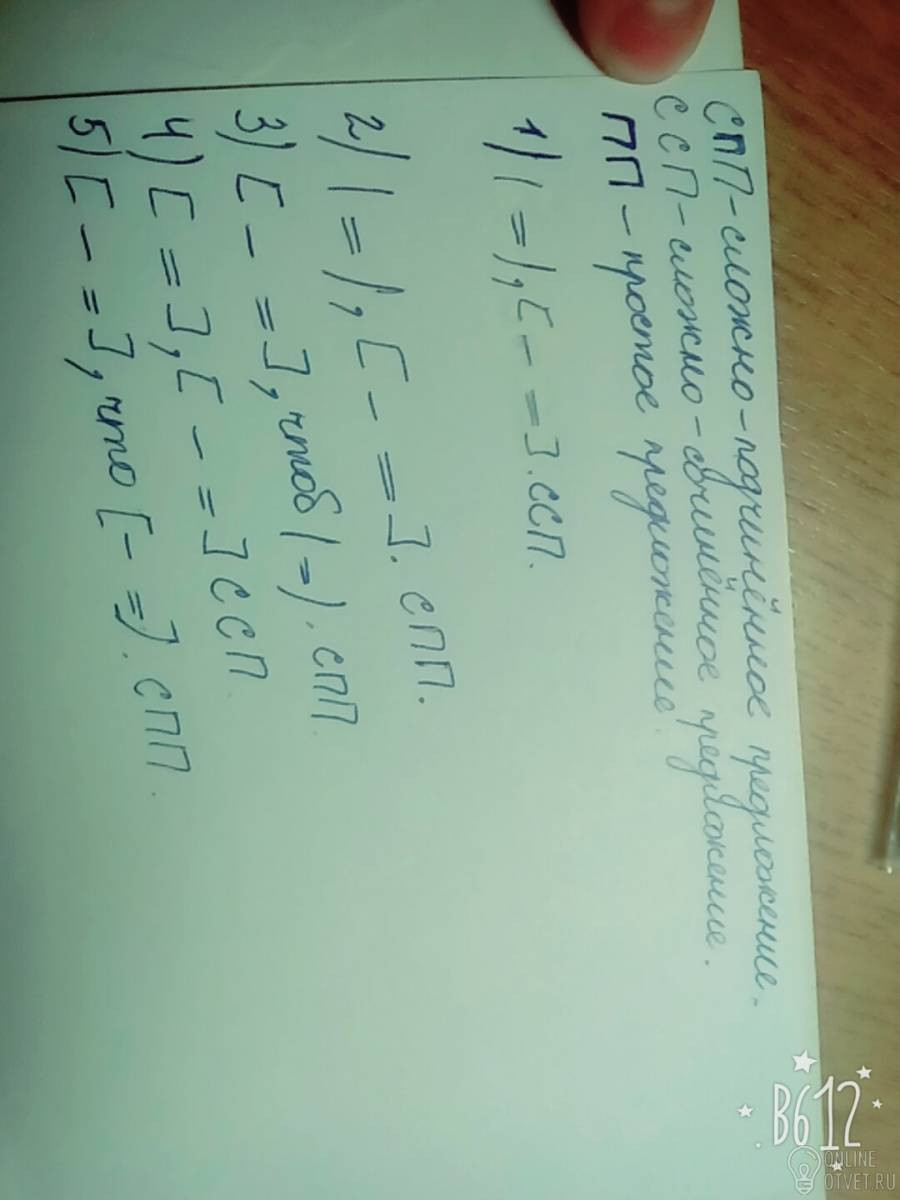 СПП-сложно-подчинённое предложение.
ССП-сложно-сочинённое предложение.
ПП-простое предложение.
1) (=), [- =]. ССП.
2) (=), [- =]. СПП.
3) [- =], чтоб (-=). СПП.
4) [=], [- =] ССП
5) [- =], что [- =]. СПП.
B612
ONLINE
OTVET.RU